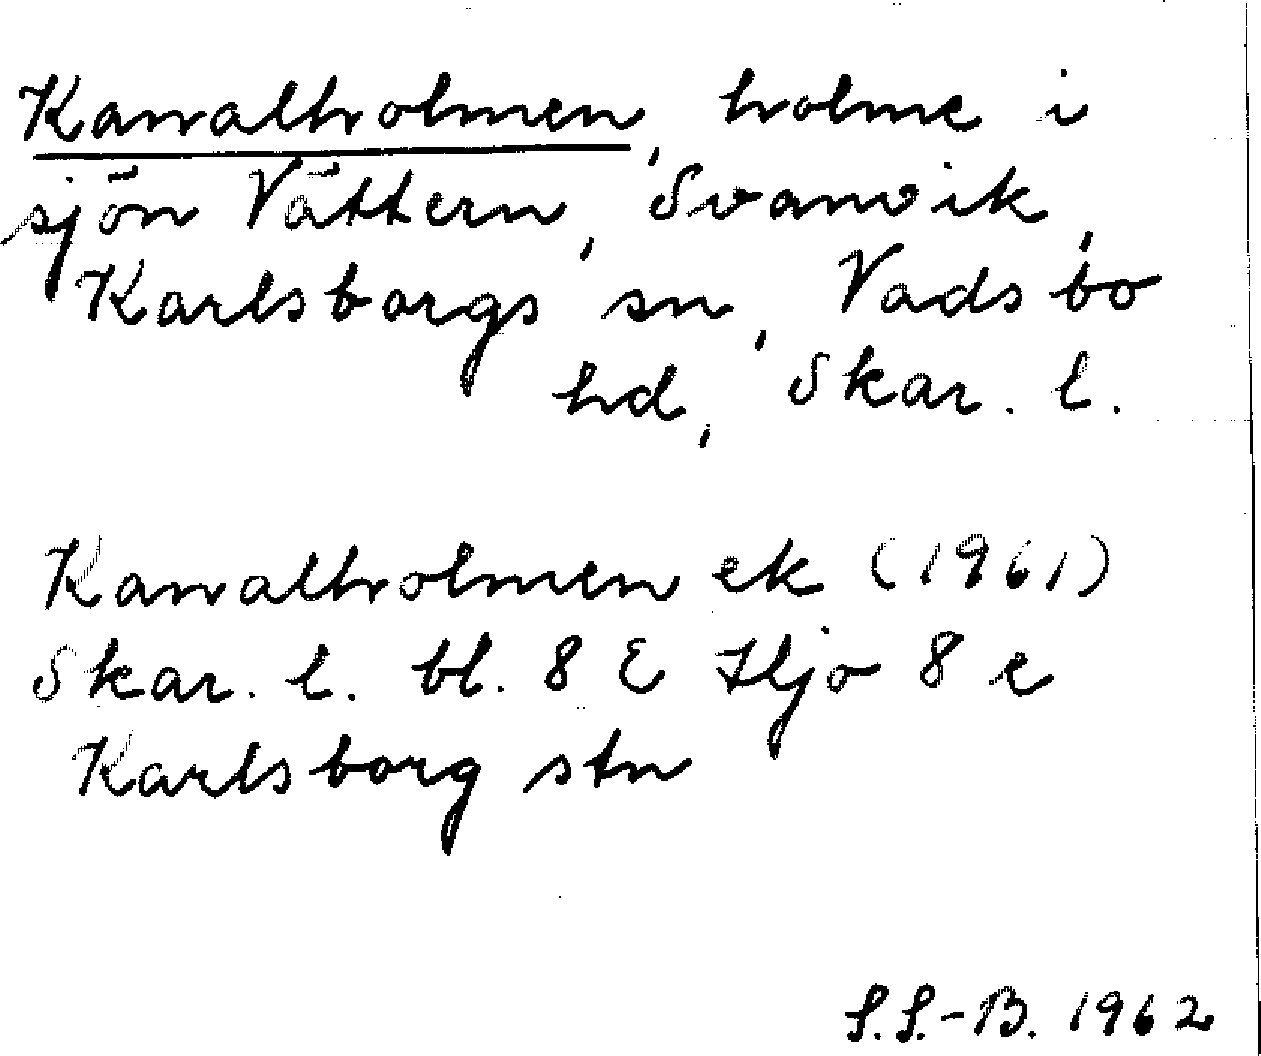 Kanalholmen, holme i
sjön Vättern, Svanvik,
Karlsborgs sn, Vadsbo
hd, Skar. l.
Kanalholmen ek (1961)
Skar. l. bl. 8 E Hjo 8 e
Karlsborg stn
S.S.-B. 1962